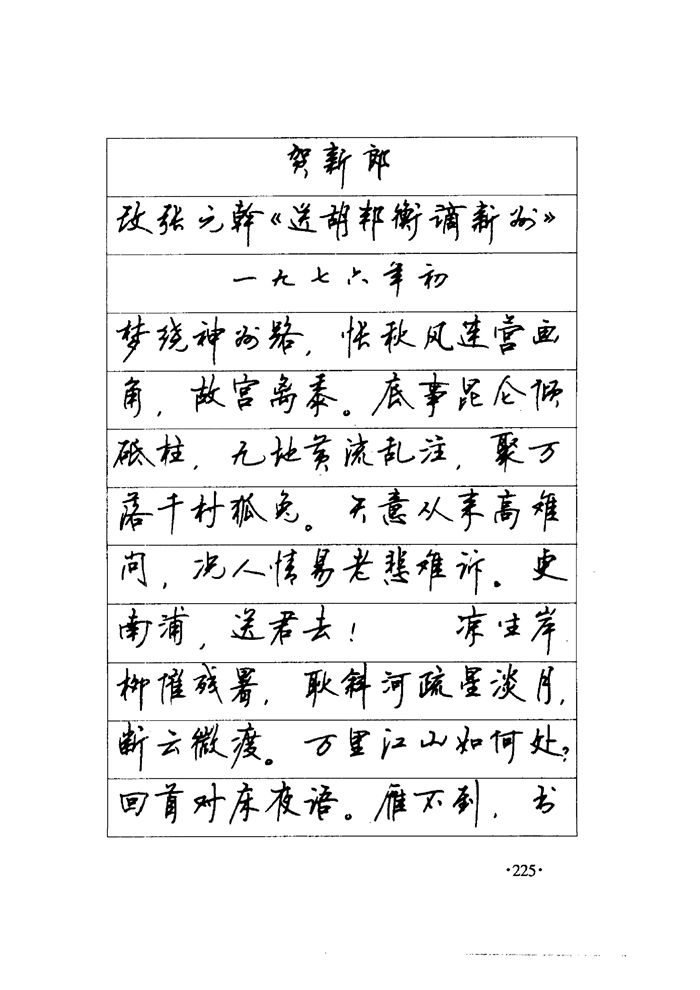 贺新郎
改张元幹《送胡邦衡谪新州》
一九七六年初
梦绕神州路，怅秋风连营画
角，故宫离黍。底事昆仑倾
砥柱，九地黄流乱注，聚万
落千村狐兔。天意从来高难
问，况人情易老悲难诉。更
南浦，送君去！ 凉生岸
柳催残暑，耿斜河疏星淡月，
断云微渡。万里江山如何处？
回首对床夜语。雁不到，书
·225·